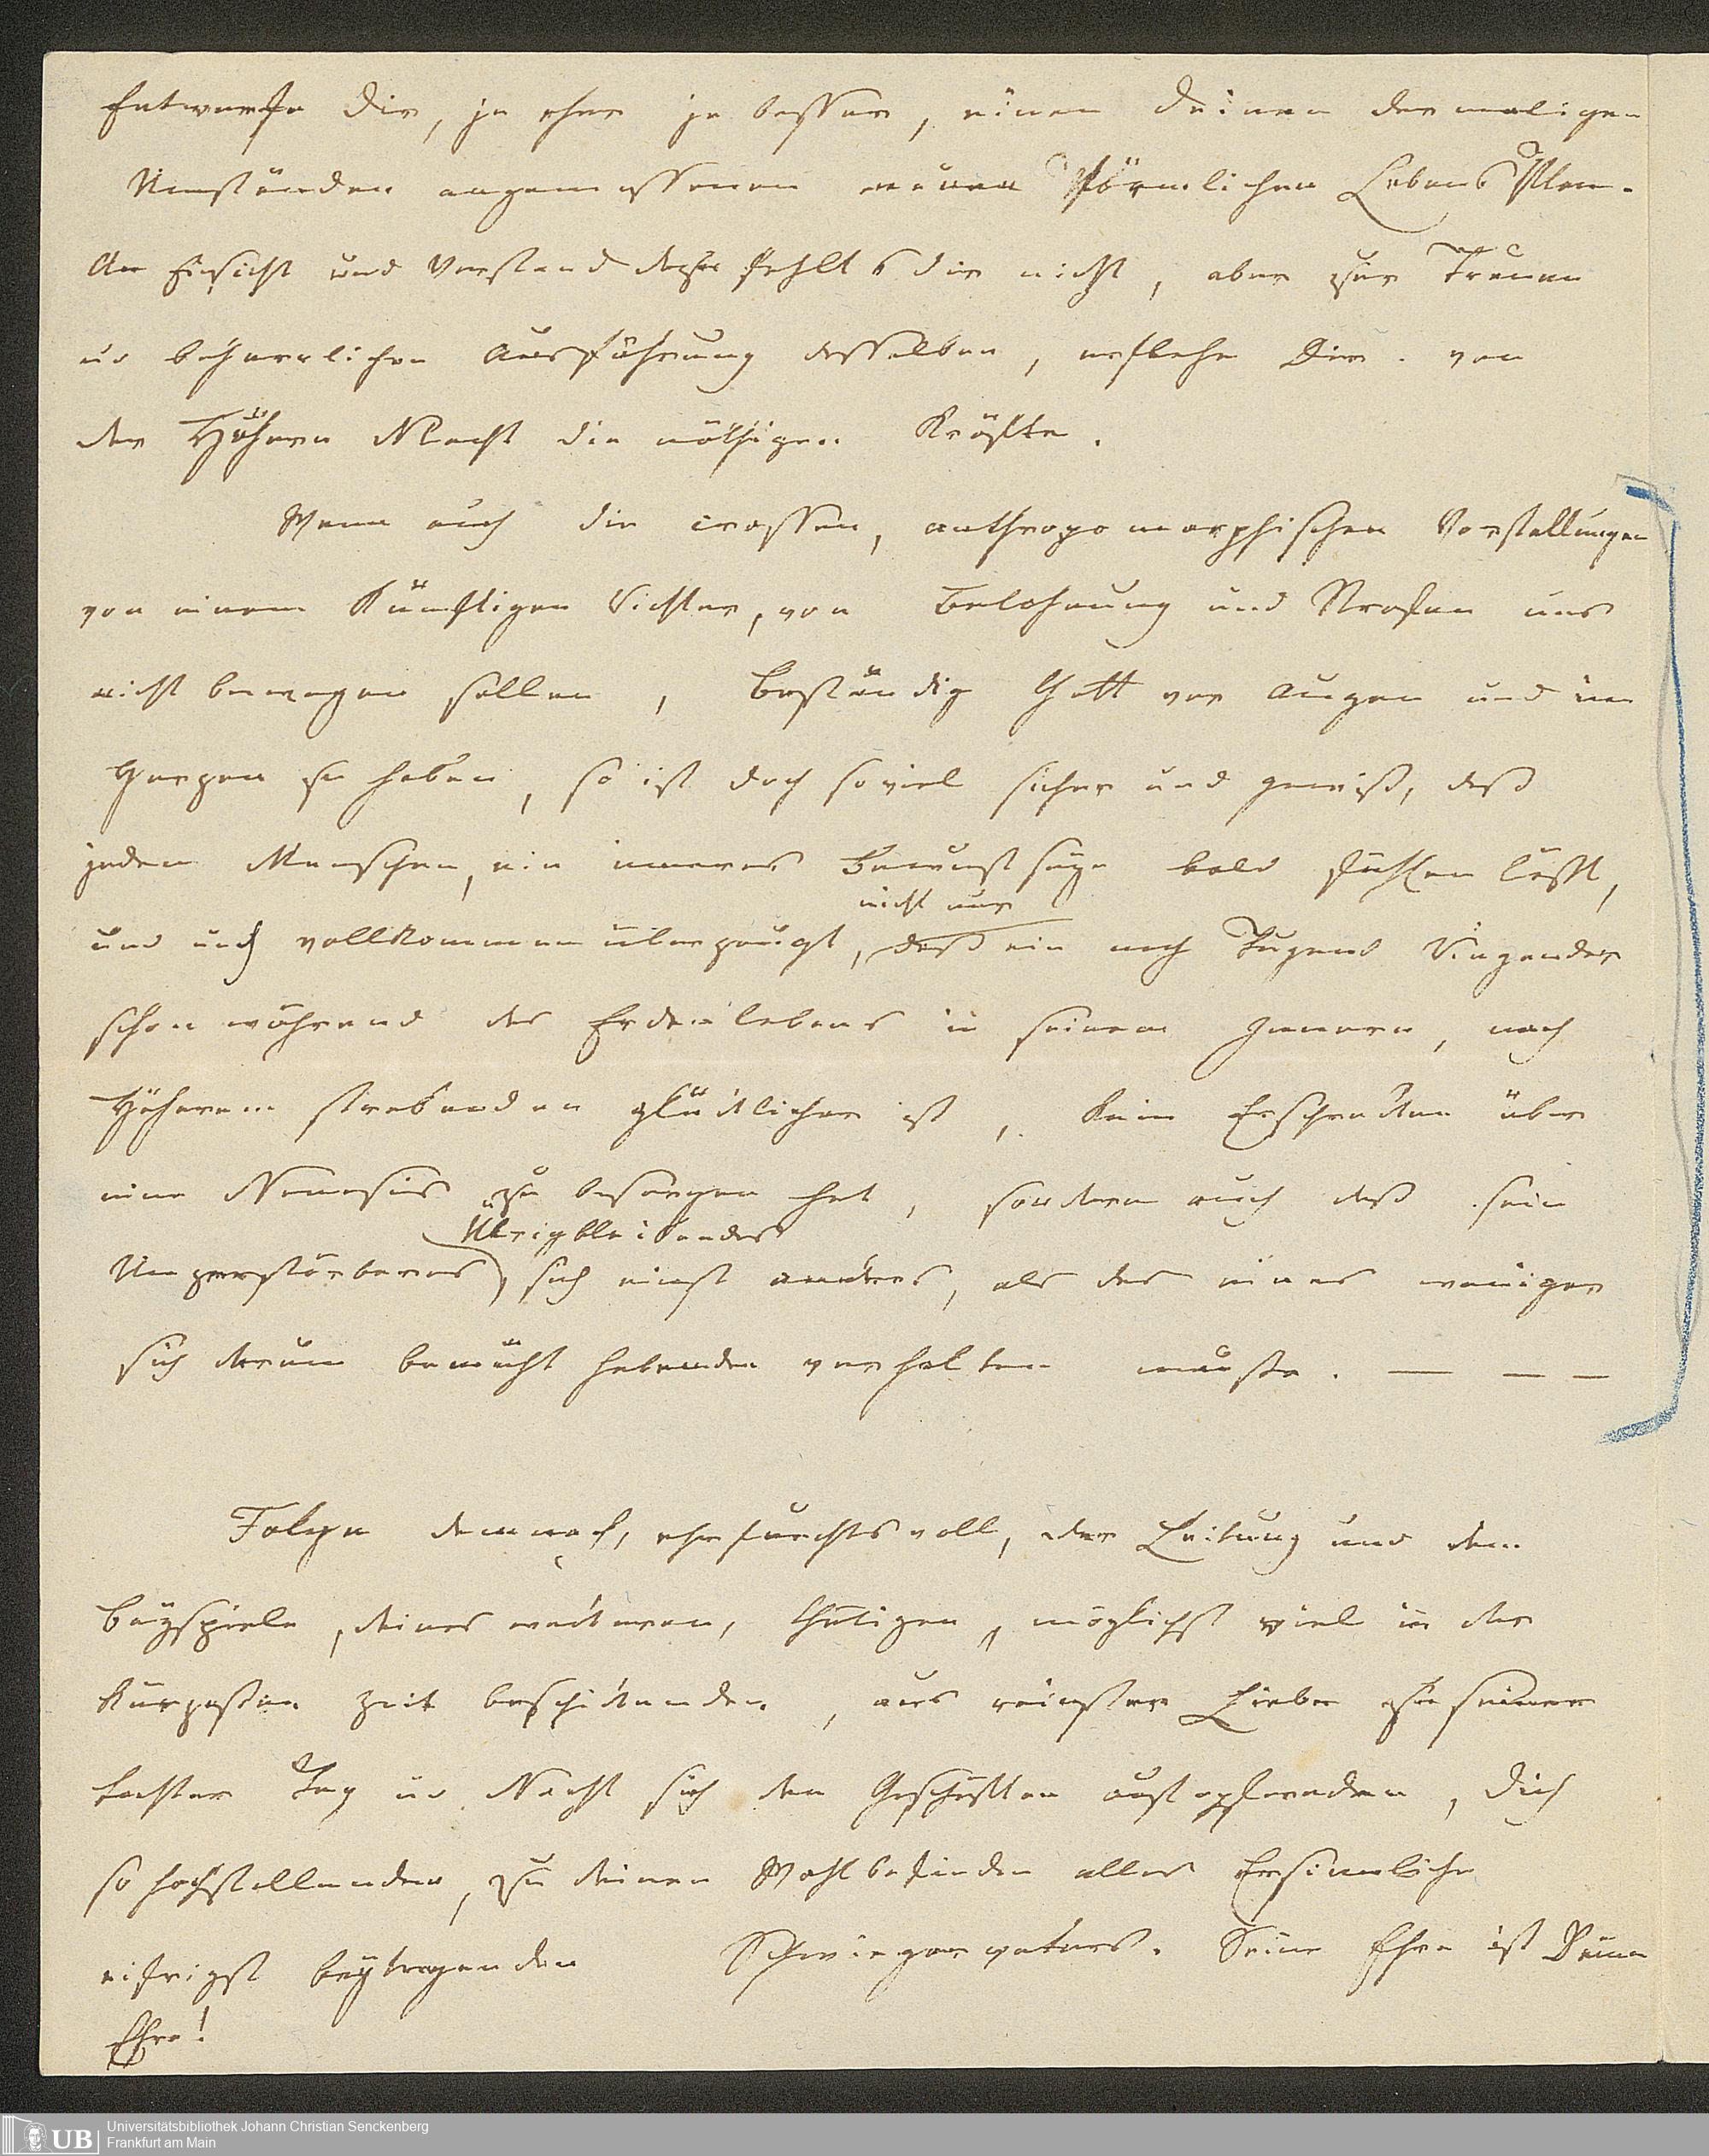 Entwerfe Dir, je eher je besser, einen Deinen dermaligen
Umständen angemessenen neuen förmlichen Lebens Plan.
An Einsicht und Verstand dazu fehlts dir nicht, aber zur Treuen
u beharrlichen Ausführung desselben, erflehe Dir von
der Höhern Macht die nöthigen Kräfte.
Wenn auch die crassen, anthropomorphischen Vorstellungen
von einem Künftigen Richter, von Belohnung und Strafen uns
nicht bewegen sollen, beständig Gott vor Augen und im
Herzen zu haben, so ist doch soviel sicher und gewiß, daß
jeden Menschen, ein inneres Bewustseyn bald fühlen läßt,
nicht nur
und uns vollkommen überzeugt, daß ein nach Tugend Ringender
schon während des Erdenlebens in seinem Innern, nach
Höherem strebenden glücklicher ist, kein Erschrecken über
eine Nemesis zu besorgen hat, sondern auch daß sein
Übrigbleibendes
Unzerstörbares, sich einst anders, als des eines weniger
sich darum bemüht habenden verhalten müsse. — — —
Folge demnach, ehrfurchtsvoll, der Leitung und dem
Beyspiele, deines wackeren, thätigen, möglichst viel in der
Kürzesten Zeit beschickenden, aus reinster Liebe zu seiner
Tochter Tag u Nacht sich den Geschäften aufopfernden, Dich
so hochstellenden, zu deinem Wohlbefinden alles Ersinnliche
eifrigst beytragenden Schwiegervaters. Seine Ehre ist Deine
Ehre!
UB Universitätsbibliothek Johann Christian Senckenberg
Frankfurt am Main